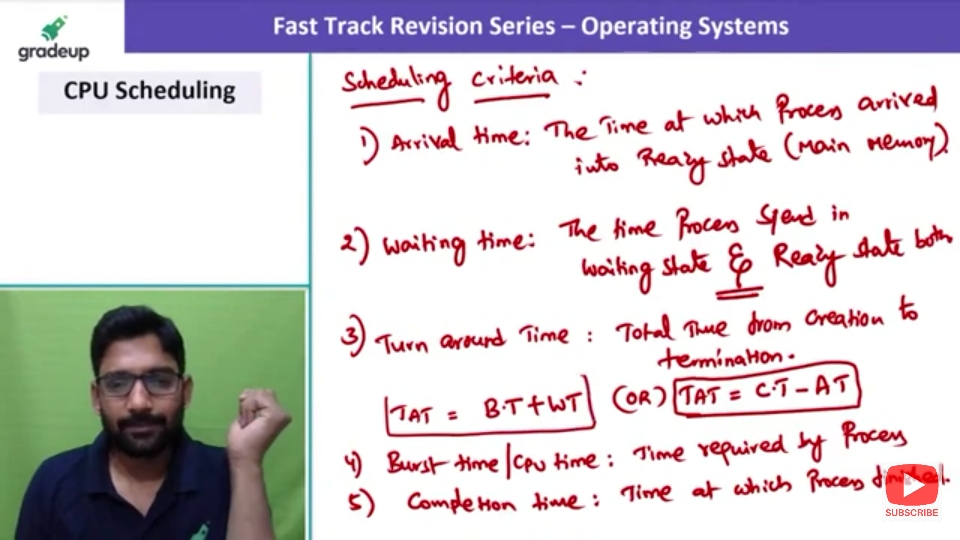 Fast Track Revision Series – Operating Systems
gradeup
CPU Scheduling
Scheduling Criteria :
1) Arrival time: The Time at which Process arrived
into Ready state (Main Memory).
2) Waiting time: The time Process Spend in
Waiting state & Ready state both
3) Turn around Time : Total Time from creation to
termination.
TAT = B.T + WT (OR) TAT = C.T - AT
4) Burst time | CPU time : Time required by Process
5) Completion time : Time at which Process finished.
SUBSCRIBE